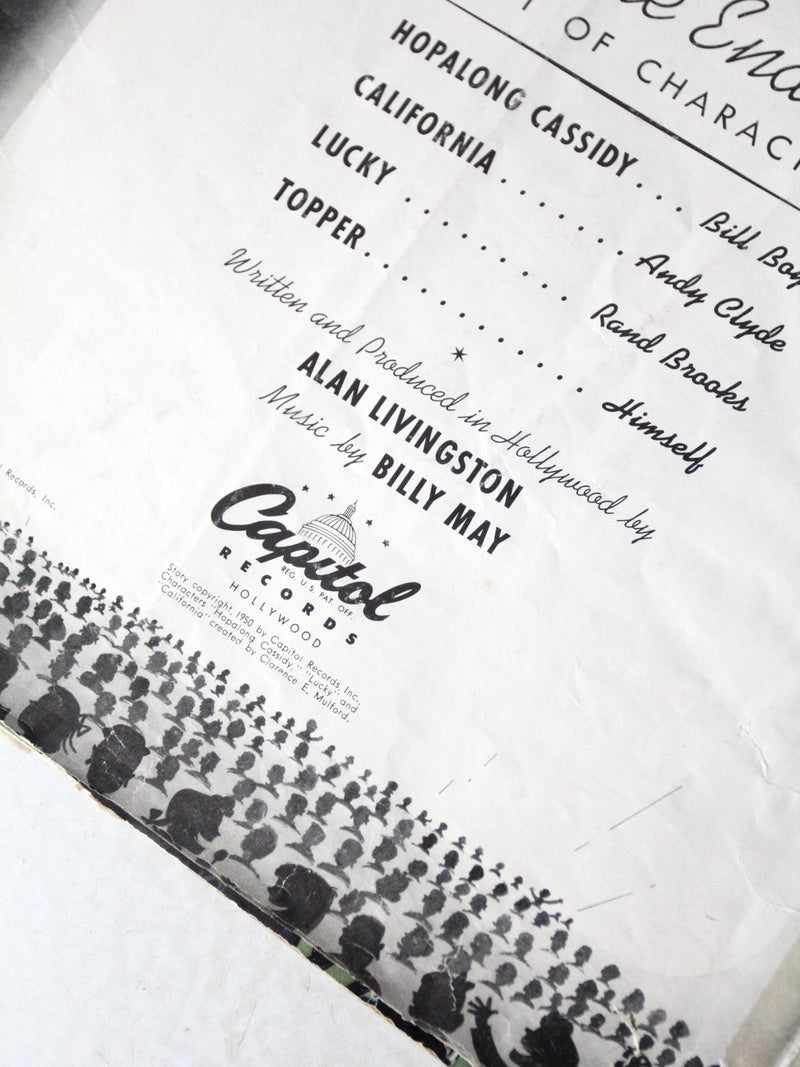 OF CHARAC
HOPALONG CASSIDY... Bill
CALIFORNIA.......... Andy Clyde
LUCKY ............. Rand Brooks
TOPPER............... Himself
Written and Produced in Hollywood by
ALAN LIVINGSTON
Music by BILLY MAY
Records, Inc.
Capitol
REG. U.S. PAT. OFF.
RECORDS
HOLLYWOOD
Story copyright, 1950 by Capitol Records, Inc.,
Characters "Hopalong Cassidy," "Lucky" and
"California" created by Clarence E. Mulford.